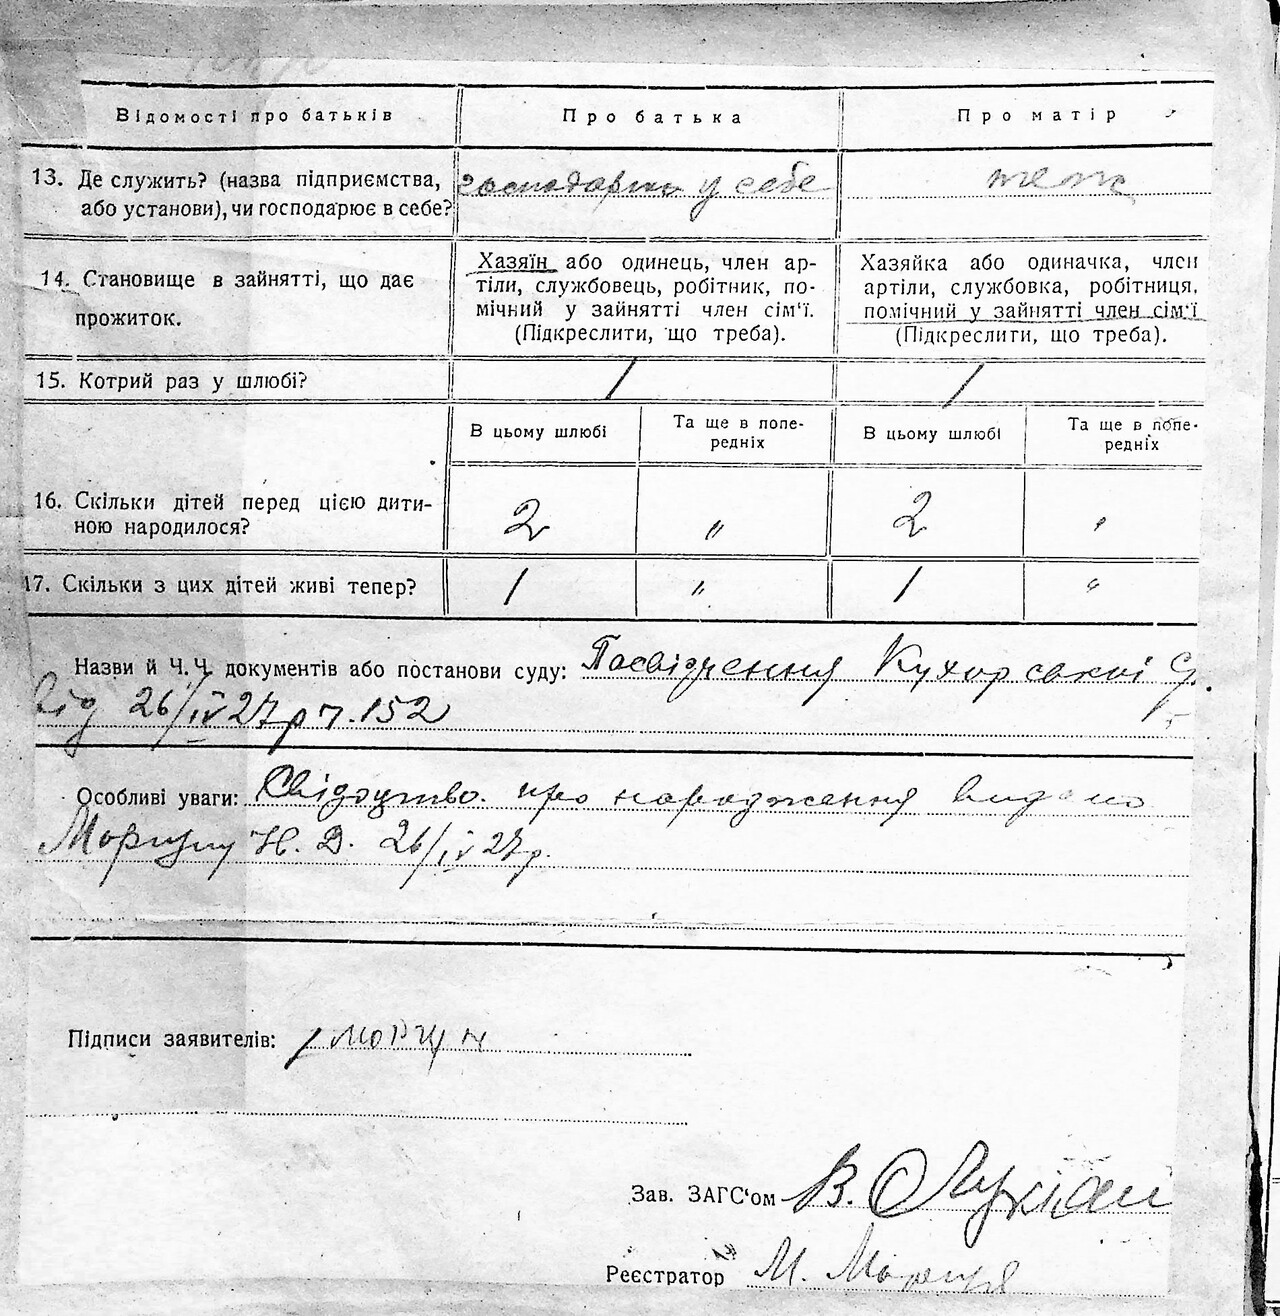 Відомості про батьків
Про батька
Про матір
13. Де служить? (назва підприємства,
або установи), чи господарює в себе?
у себе
теж
14. Становище в зайнятті, що дає
прожиток.
Хазяїн або одинець, член ар-
тіли, службовець, робітник, по-
мічний у зайнятті член сім'ї.
(Підкреслити, що треба).
Хазяйка або одиначка, член
артіли, службовка, робітниця,
помічний у зайнятті член сім'ї
(Підкреслити, що треба).
15. Котрий раз у шлюбі?
1
1
В цьому шлюбі
Та ще в попе-
редніх
В цьому шлюбі
Та ще в попе-
редніх
16. Скільки дітей перед цією дити-
ною народилося?
2
"
2
"
17. Скільки з цих дітей живі тепер?
1
"
1
"
Назви й Ч.Ч. документів або постанови суду: Посвідчення Кухарської С.
Від 26/IV 27 р ч. 152
Особливі уваги: Свідоцтво про народження видано
Моргуну Н. Д. 26/IV 27 р.
Підписи заявителів: Моргун
Зав. ЗАГС'ом В.
Реєстратор М.